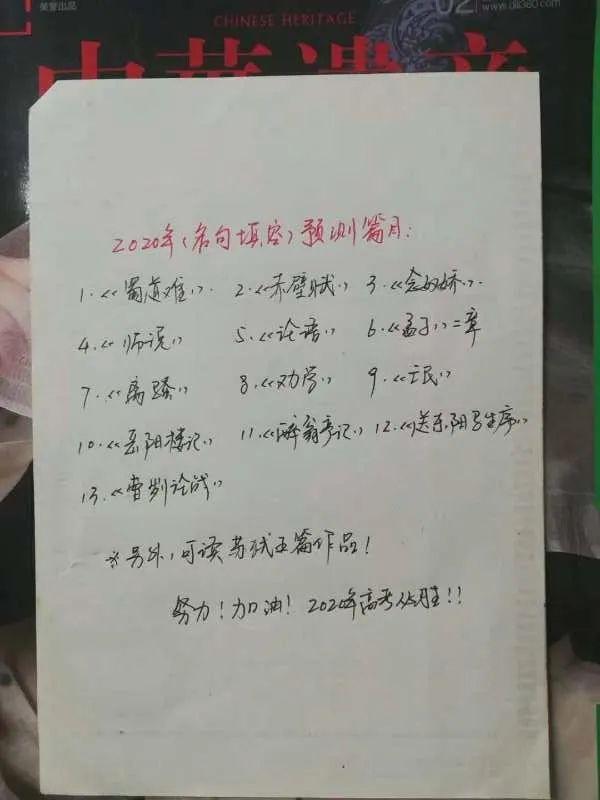 荣誉出品
CHINESE HERITAGE
02
www.dili360.com
中華遺产
2020年(名句填空)预测篇目:
1.《蜀道难》. 2.《赤壁赋》 3.《念奴娇》.
4.《师说》 5.《论语》 6.《孟子》二章
7.《离骚》 8.《劝学》 9.《氓》
10.《岳阳楼记》 11.《醉翁亭记》 12.《送东阳马生序》
13.《曹刿论战》
※另外,可读苏轼五篇作品!
努力!加油!2020年高考必胜!!